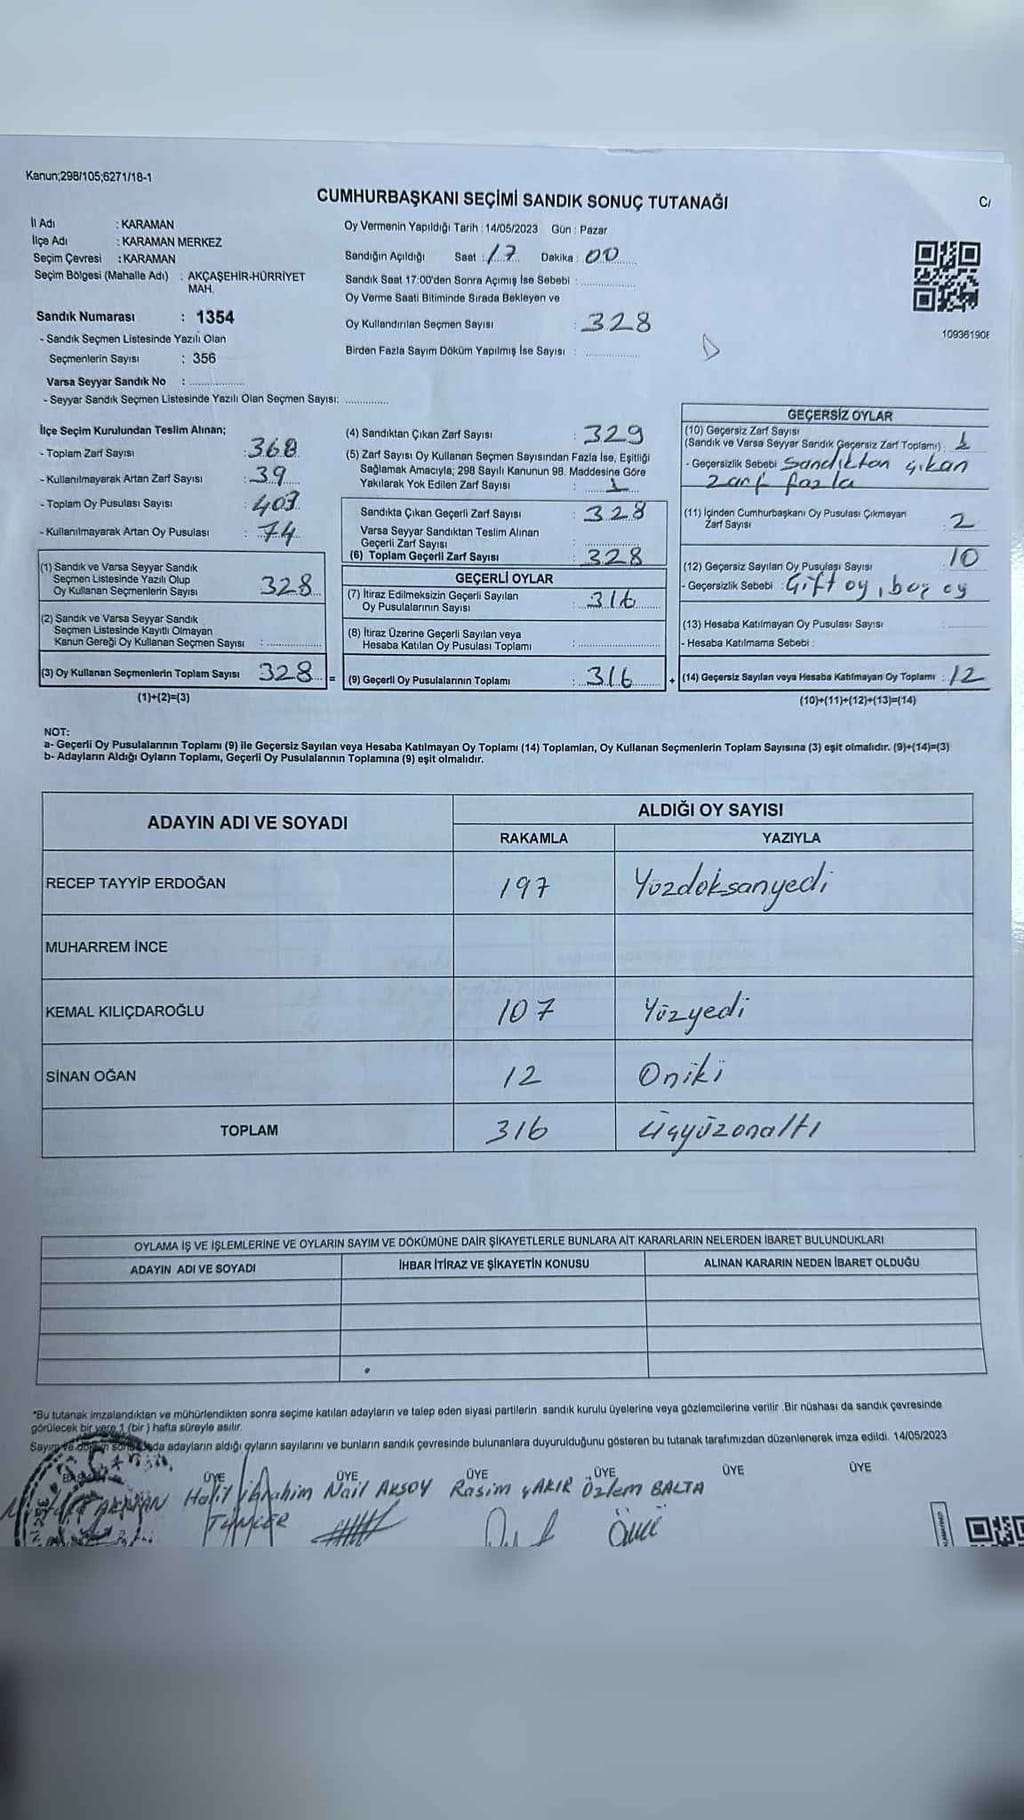 Kanun;298/105;6271/18-1
CUMHURBAŞKANI SEÇİMİ SANDIK SONUÇ TUTANAĞI
İl Adı : KARAMAN
İlçe Adı : KARAMAN MERKEZ
Seçim Çevresi : KARAMAN
Seçim Bölgesi (Mahalle Adı) : AKÇAŞEHİR-HÜRRİYET
MAH.
Sandık Numarası : 1354
- Sandık Seçmen Listesinde Yazılı Olan
Seçmenlerin Sayısı : 356
Varsa Seyyar Sandık No : ................
- Seyyar Sandık Seçmen Listesinde Yazılı Olan Seçmen Sayısı: .............
Oy Vermenin Yapıldığı Tarih : 14/05/2023 Gün : Pazar
Sandığın Açıldığı Saat : 17 Dakika : 00
Sandık Saat 17:00'den Sonra Açımış İse Sebebi : ................
Oy Verme Saati Bitiminde Sırada Bekleyen ve
Oy Kullandırılan Seçmen Sayısı : 328
Birden Fazla Sayım Döküm Yapılmış İse Sayısı : ................
109361908
İlçe Seçim Kurulundan Teslim Alınan;
- Toplam Zarf Sayısı : 368
- Kullanılmayarak Artan Zarf Sayısı : 39
- Toplam Oy Pusulası Sayısı : 403
- Kullanılmayarak Artan Oy Pusulası : 74
(1) Sandık ve Varsa Seyyar Sandık
Seçmen Listesinde Yazılı Olup
Oy Kullanan Seçmenlerin Sayısı : 328
(2) Sandık ve Varsa Seyyar Sandık
Seçmen Listesinde Kayıtlı Olmayan
Kanun Gereği Oy Kullanan Seçmen Sayısı : ................
(3) Oy Kullanan Seçmenlerin Toplam Sayısı 328 =
(1)+(2)=(3)
(4) Sandıktan Çıkan Zarf Sayısı : 329
(5) Zarf Sayısı Oy Kullanan Seçmen Sayısından Fazla İse, Eşitliği
Sağlamak Amacıyla; 298 Sayılı Kanunun 98. Maddesine Göre
Yakılarak Yok Edilen Zarf Sayısı : 1
Sandıkta Çıkan Geçerli Zarf Sayısı : 328
Varsa Seyyar Sandıktan Teslim Alınan
Geçerli Zarf Sayısı : ................
(6) Toplam Geçerli Zarf Sayısı : 328
GEÇERLİ OYLAR
(7) İtiraz Edilmeksizin Geçerli Sayılan
Oy Pusulalarının Sayısı : 316
(8) İtiraz Üzerine Geçerli Sayılan veya
Hesaba Katılan Oy Pusulası Toplamı : ................
(9) Geçerli Oy Pusulalarının Toplamı : 316 +
GEÇERSİZ OYLAR
(10) Geçersiz Zarf Sayısı
(Sandık ve Varsa Seyyar Sandık Geçersiz Zarf Toplamı) :
- Geçersizlik Sebebi : Sandıktan çıkan
zarf fazla
(11) İçinden Cumhurbaşkanı Oy Pusulası Çıkmayan
Zarf Sayısı : 2
(12) Geçersiz Sayılan Oy Pusulası Sayısı : 10
- Geçersizlik Sebebi : Çift oy, boş oy
(13) Hesaba Katılmayan Oy Pusulası Sayısı : ................
- Hesaba Katılmama Sebebi :
(14) Geçersiz Sayılan veya Hesaba Katılmayan Oy Toplamı : 12
(10)+(11)+(12)+(13)=(14)
NOT:
a- Geçerli Oy Pusulalarının Toplamı (9) ile Geçersiz Sayılan veya Hesaba Katılmayan Oy Toplamı (14) Toplamları, Oy Kullanan Seçmenlerin Toplam Sayısına (3) eşit olmalıdır. (9)+(14)=(3)
b- Adayların Aldığı Oyların Toplamı, Geçerli Oy Pusulalarının Toplamına (9) eşit olmalıdır.
ADAYIN ADI VE SOYADI
ALDIĞI OY SAYISI
RAKAMLA YAZIYLA
RECEP TAYYİP ERDOĞAN 197 Yüzdoksanyedi
MUHARREM İNCE
KEMAL KILIÇDAROĞLU 107 Yüzyedi
SİNAN OĞAN 12 Oniki
TOPLAM 316 üçyüzonaltı
OYLAMA İŞ VE İŞLEMLERİNE VE OYLARIN SAYIM VE DÖKÜMÜNE DAİR ŞİKAYETLERLE BUNLARA AİT KARARLARIN NELERDEN İBARET BULUNDUKLARI
ADAYIN ADI VE SOYADI İHBAR İTİRAZ VE ŞİKAYETİN KONUSU ALINAN KARARIN NEDEN İBARET OLDUĞU
*Bu tutanak imzalandıktan ve mühürlendikten sonra seçime katılan adayların ve talep eden siyasi partilerin sandık kurulu üyelerine veya gözlemcilerine verilir .Bir nüshası da sandık çevresinde
görülecek bir yere 1 (bir ) hafta süreyle asılır.
Sayım ve döküm adayların aldığı oyların sayılarını ve bunların sandık çevresinde bulunanlara duyurulduğunu gösteren bu tutanak tarafımızdan düzenlenerek imza edildi. 14/05/2023
ÜYE ÜYE ÜYE ÜYE ÜYE ÜYE
Halil İbrahim Nail AKSOY Rasim ÇAKIR Özlem BALTA